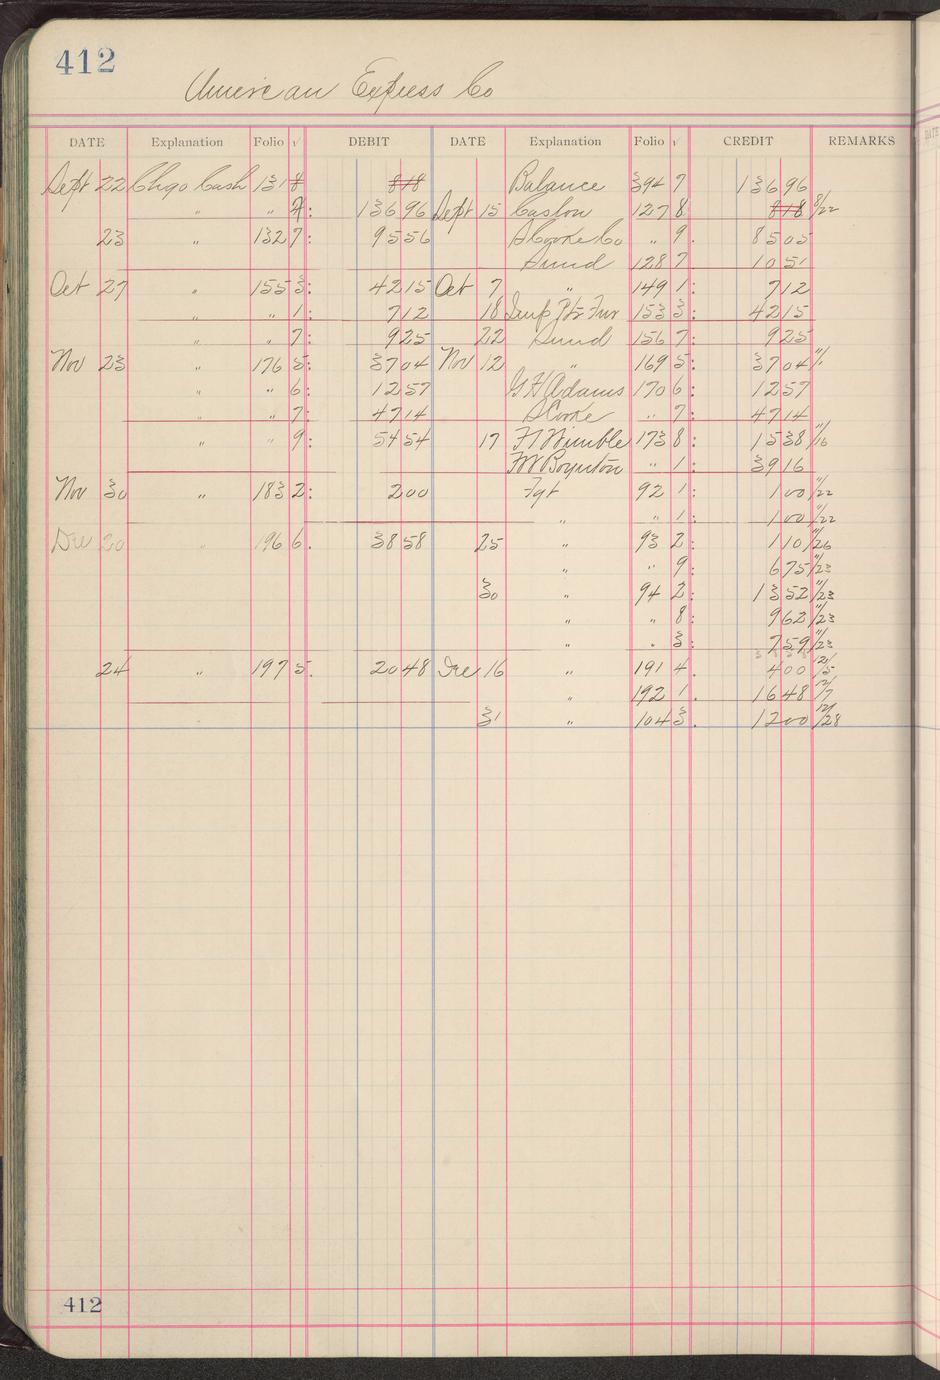 412
American Express Co
DATE Explanation Folio √ DEBIT DATE Explanation Folio √ CREDIT REMARKS
Sept 22 Chgo Cash 131 8 818 Balance 394 7 136 96
" " 7: 136 96 Sept 15 Caslon 127 8 818 8/22
23 " 132 7: 95 56 S Cooke Co " 9. 85 05
Sund 128 7 10 51
Oct 27 " 155 3: 42 15 Oct 7 " 149 1: 7 12
" " 1: 7 12 18 Imp Ptr Fur 153 3: 42 15
" " 7: 9 25 22 Sund 156 7: 9 25
Nov 23 " 176 5: 37 04 Nov 12 " 169 5: 37 04
" " 6: 12 57 G H Adams 170 6: 12 57
" " 7: 47 14 S Cooke " 7: 47 14
" " 9: 54 54 17 F Wimble 173 8: 15 38 11/16
FW Boynton " 1: 39 16
Nov 30 " 183 2: 2 00 Fgt 92 1: 1 00 11/22
" " 1: 1 00 11/22
Dec 20 " 196 6. 38 58 25 " 93 2: 1 10 11/26
" " 9: 6 75 11/23
30 " 94 2: 13 52 11/23
" " 8: 9 62 11/23
" " 3: 7 59 11/23
24 " 197 5. 20 48 Dec 16 " 191 4 4 00 12/5
" 192 1. 16 48 12/7
31 " 104 3. 12 00 12/28
412